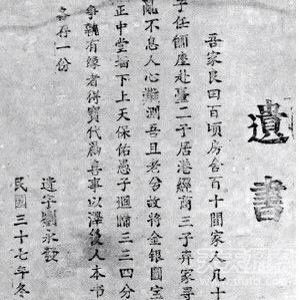 遺書
吾家良田百頃房舍百十間家人凡十
子任團座赴臺二子居港經商三子弃家尋
亂不息人心難測吾且老舍故將金銀國宝
正中堂墙下上天保佑愚子迴歸三三四分
爭執有緣者得寶代為善事以澤後人本书
各存一份
遺字劉永發
民國三十七年冬